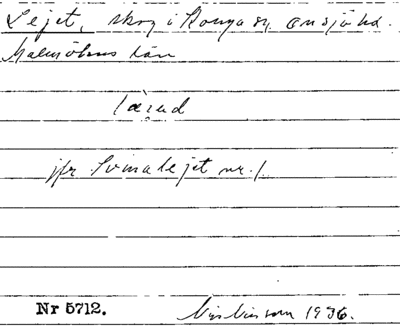 Lejet, skog i Konga sn, Onsjö hd.
Malmöhus län
lærəd
jfr Svinalejet nr. 1
Nr 5712.
1936.